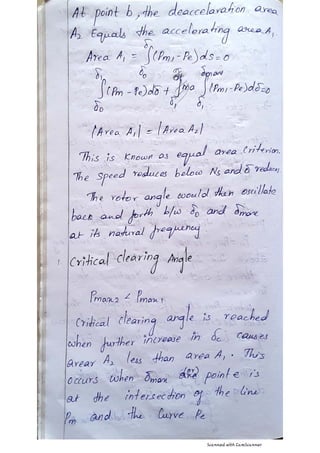 At point b, the deaccelaration area
A2 Equals the accelerating area A1
Area A1 = ∫δ0^δ1 (Pm1 - Pe) dδ = 0
∫δ0^δ1 (Pm - Pe) dδ + ∫δ1^δmax (Pm1 - Pe) dδ = 0
|Area A1| = |Area A2|
This is known as equal area Criterion.
The speed reduces below Ns and δ reduces
The rotor angle would then oscillate
back and forth b/w δ0 and δmax
at its natural frequency
Critical clearing Angle
Pmax2 < Pmax1
Critical clearing angle is reached
when further increase in δc causes
area A2 less than area A1. This
occurs when δmax point e is
at the intersection of the line
Pm and the curve Pe
Scanned with CamScanner